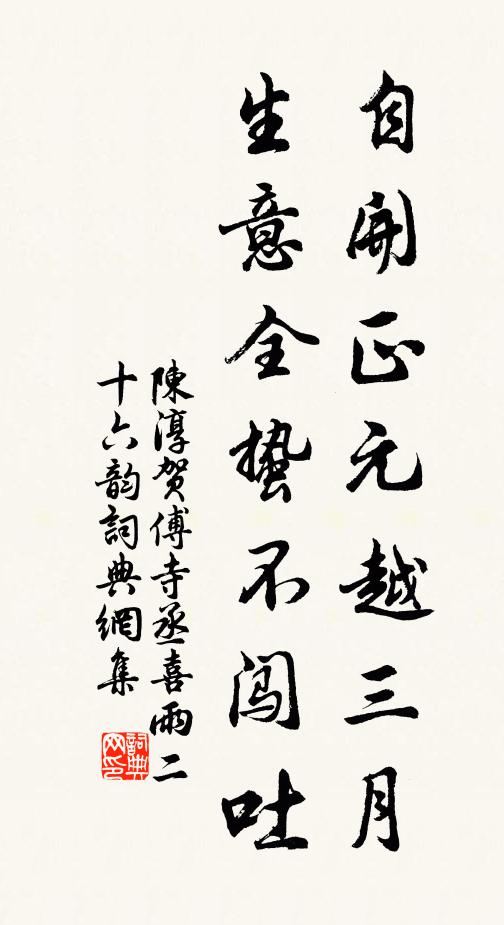 自開正元越三月
生意全蟄不闖吐
陳淳賀傅寺丞喜雨二
十六韵詞典網集
詞典
网印